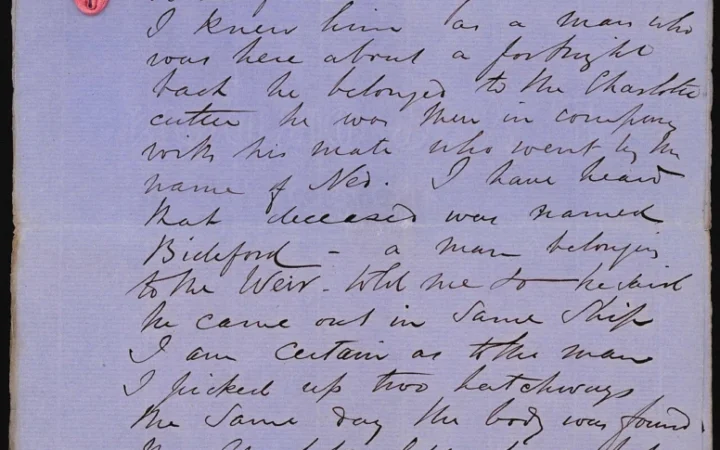 I knew him as a man who
was here about a fortnight
back he belonged to the Charlotte
cutter he was then in company
with his mate who went by the
name of Ned. I have heard
that deceased was named
Bideford – a man belonging
to the Weir – told me so – he said
he came out in same ship
I am certain as to the man
I picked up two hatchways
the same day the body was found.